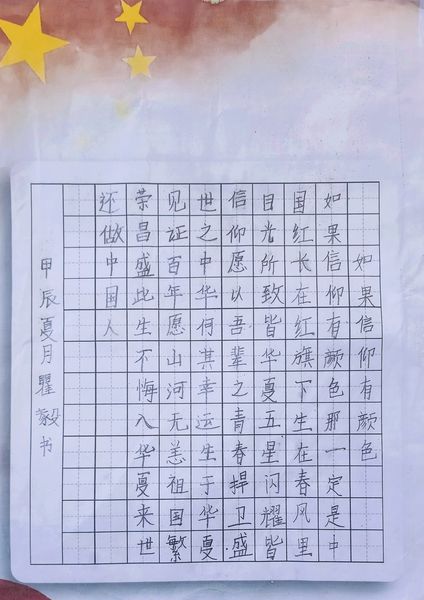 如果信仰有颜色
如果信仰有颜色那一定是中
国红长在红旗下生在春风里
目光所致皆华夏五星闪耀皆
信仰愿以吾辈之青春捍卫盛
世之中华何其幸运生于华夏
见证百年愿山河无恙祖国繁
荣昌盛此生不悔入华夏来世
还做中国人
甲辰夏月瞿毅书